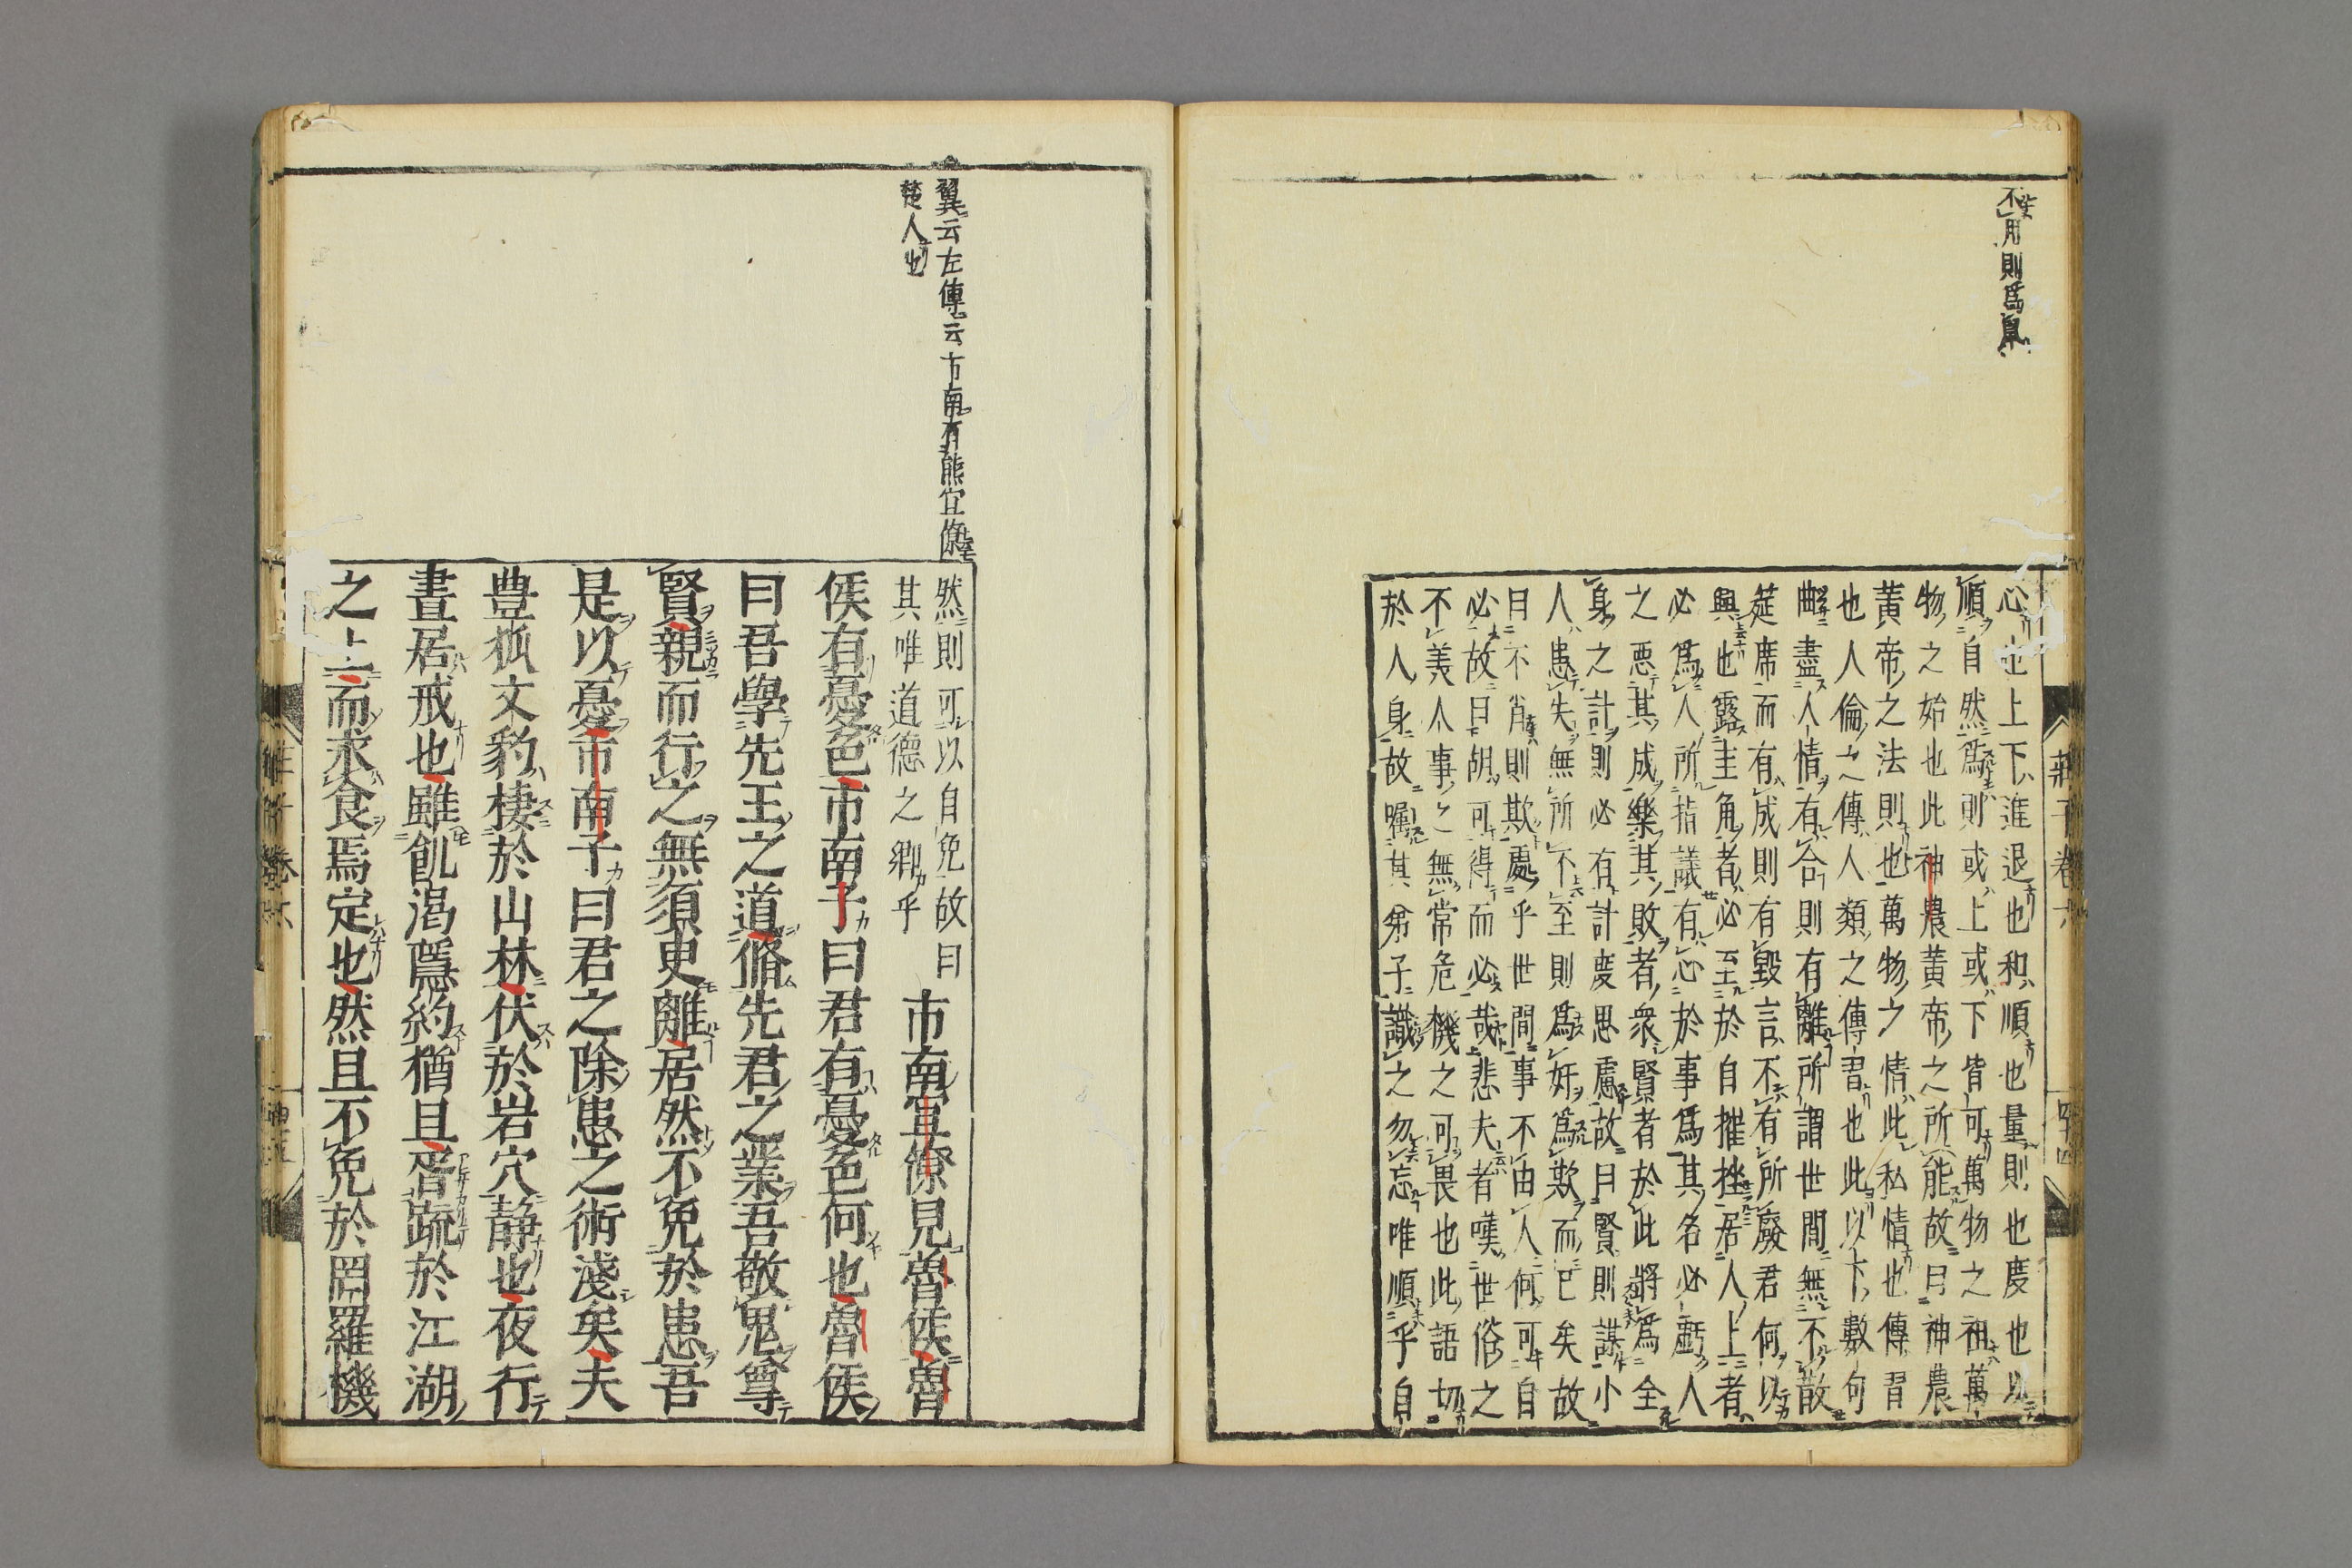 不用則爲鼠
心也上下進退也和順也量則也度也以
順自然爲則或上或下皆可萬物之祖萬
物之始也此神農黃帝之所能故曰神農
黃帝之法則也萬物之情此私情也傳習
也人倫之傳人類之傳習也此以下數句
曲盡人情有合則有離所謂世間無不散
筵席而有成則有毀言不有所廢君何以
興也露圭角者必至於自摧挫居人上者
必爲人所指議有心於事爲其名必虧人
之惡其成樂其敗者衆賢者於此將爲全
身之計則必有計度思慮故曰賢則謀小
人患失無所不至則爲奸爲欺而已矣故
曰不肖則欺處乎世間事不由人何可自
必故曰胡可得而必哉悲夫者嘆世俗之
不美人事之無常危機之可畏也此語切
於人身故囑其弟子識之勿忘唯順乎自
莊子卷六
四十四
翼云左傳云市南有熊宜僚
楚人也
然則可以自免故曰
其唯道德之鄉乎
市南宜僚見魯侯魯
侯有憂色市南子曰君有憂色何也魯侯
曰吾學先王之道脩先君之業吾敬鬼尊
賢親而行之無須臾離居然不免於患吾
是以憂市南子曰君之除患之術淺矣夫
豊狐文豹棲於山林伏於岩穴静也夜行
晝居戒也雖飢渴隱約猶且胥疏於江湖
之上而求食焉定也然且不免於罔羅機